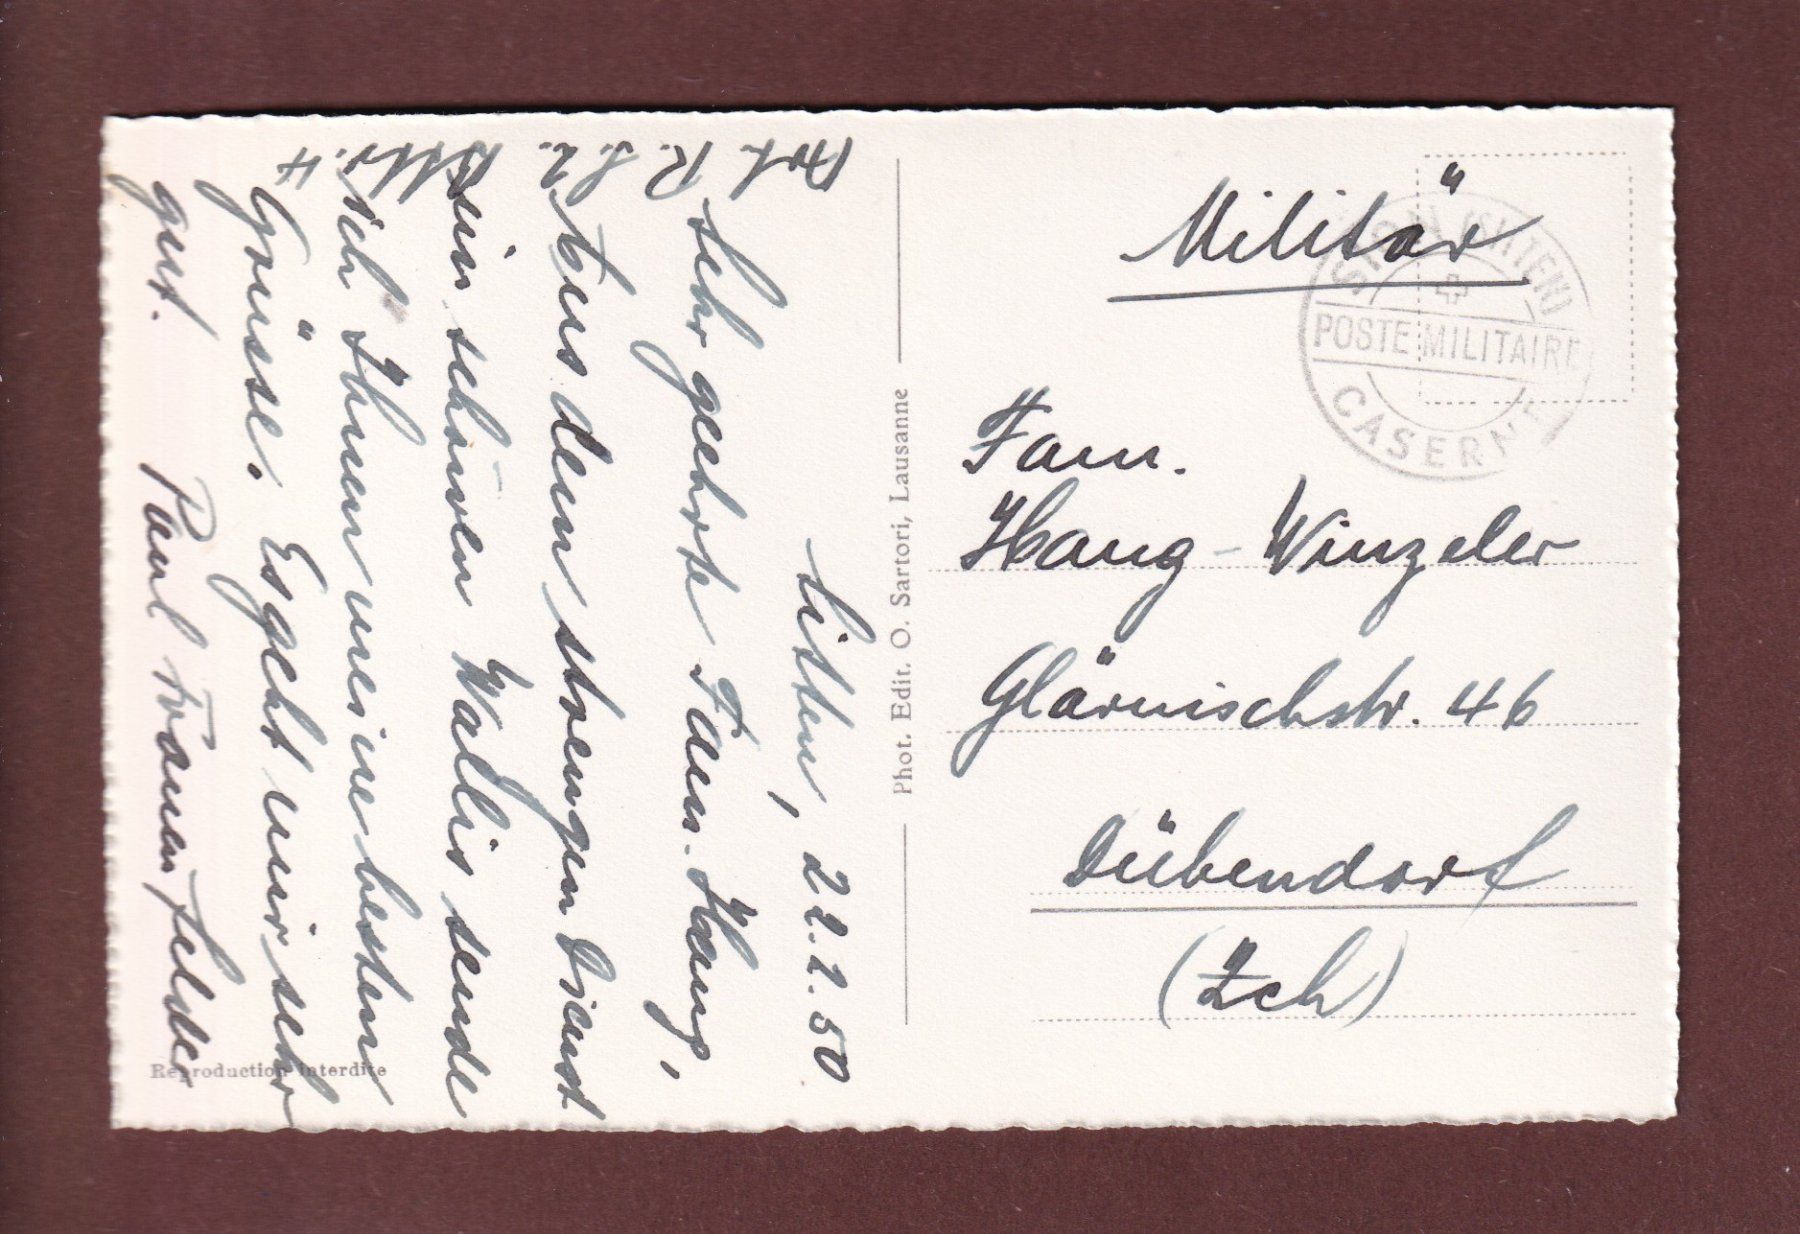 Sitten, 22.2.50
Art. R.S. 2.
Bttr. 4
Sehr geehrte Fam. Haug,
Aus dem strengen Dienst
im schönen Wallis sende
ich Ihnen meine besten
Grüsse. Es geht mir sehr
gut. Paul Frauenfelder
Reproduction interdite
Phot. Edit. O. Sartori, Lausanne
Militär
SION (SITTEN)
POSTE MILITAIRE
CASERNE
Fam.
Haug-Winzeler
Glärnischstr. 46
Dübendorf
(Zch)